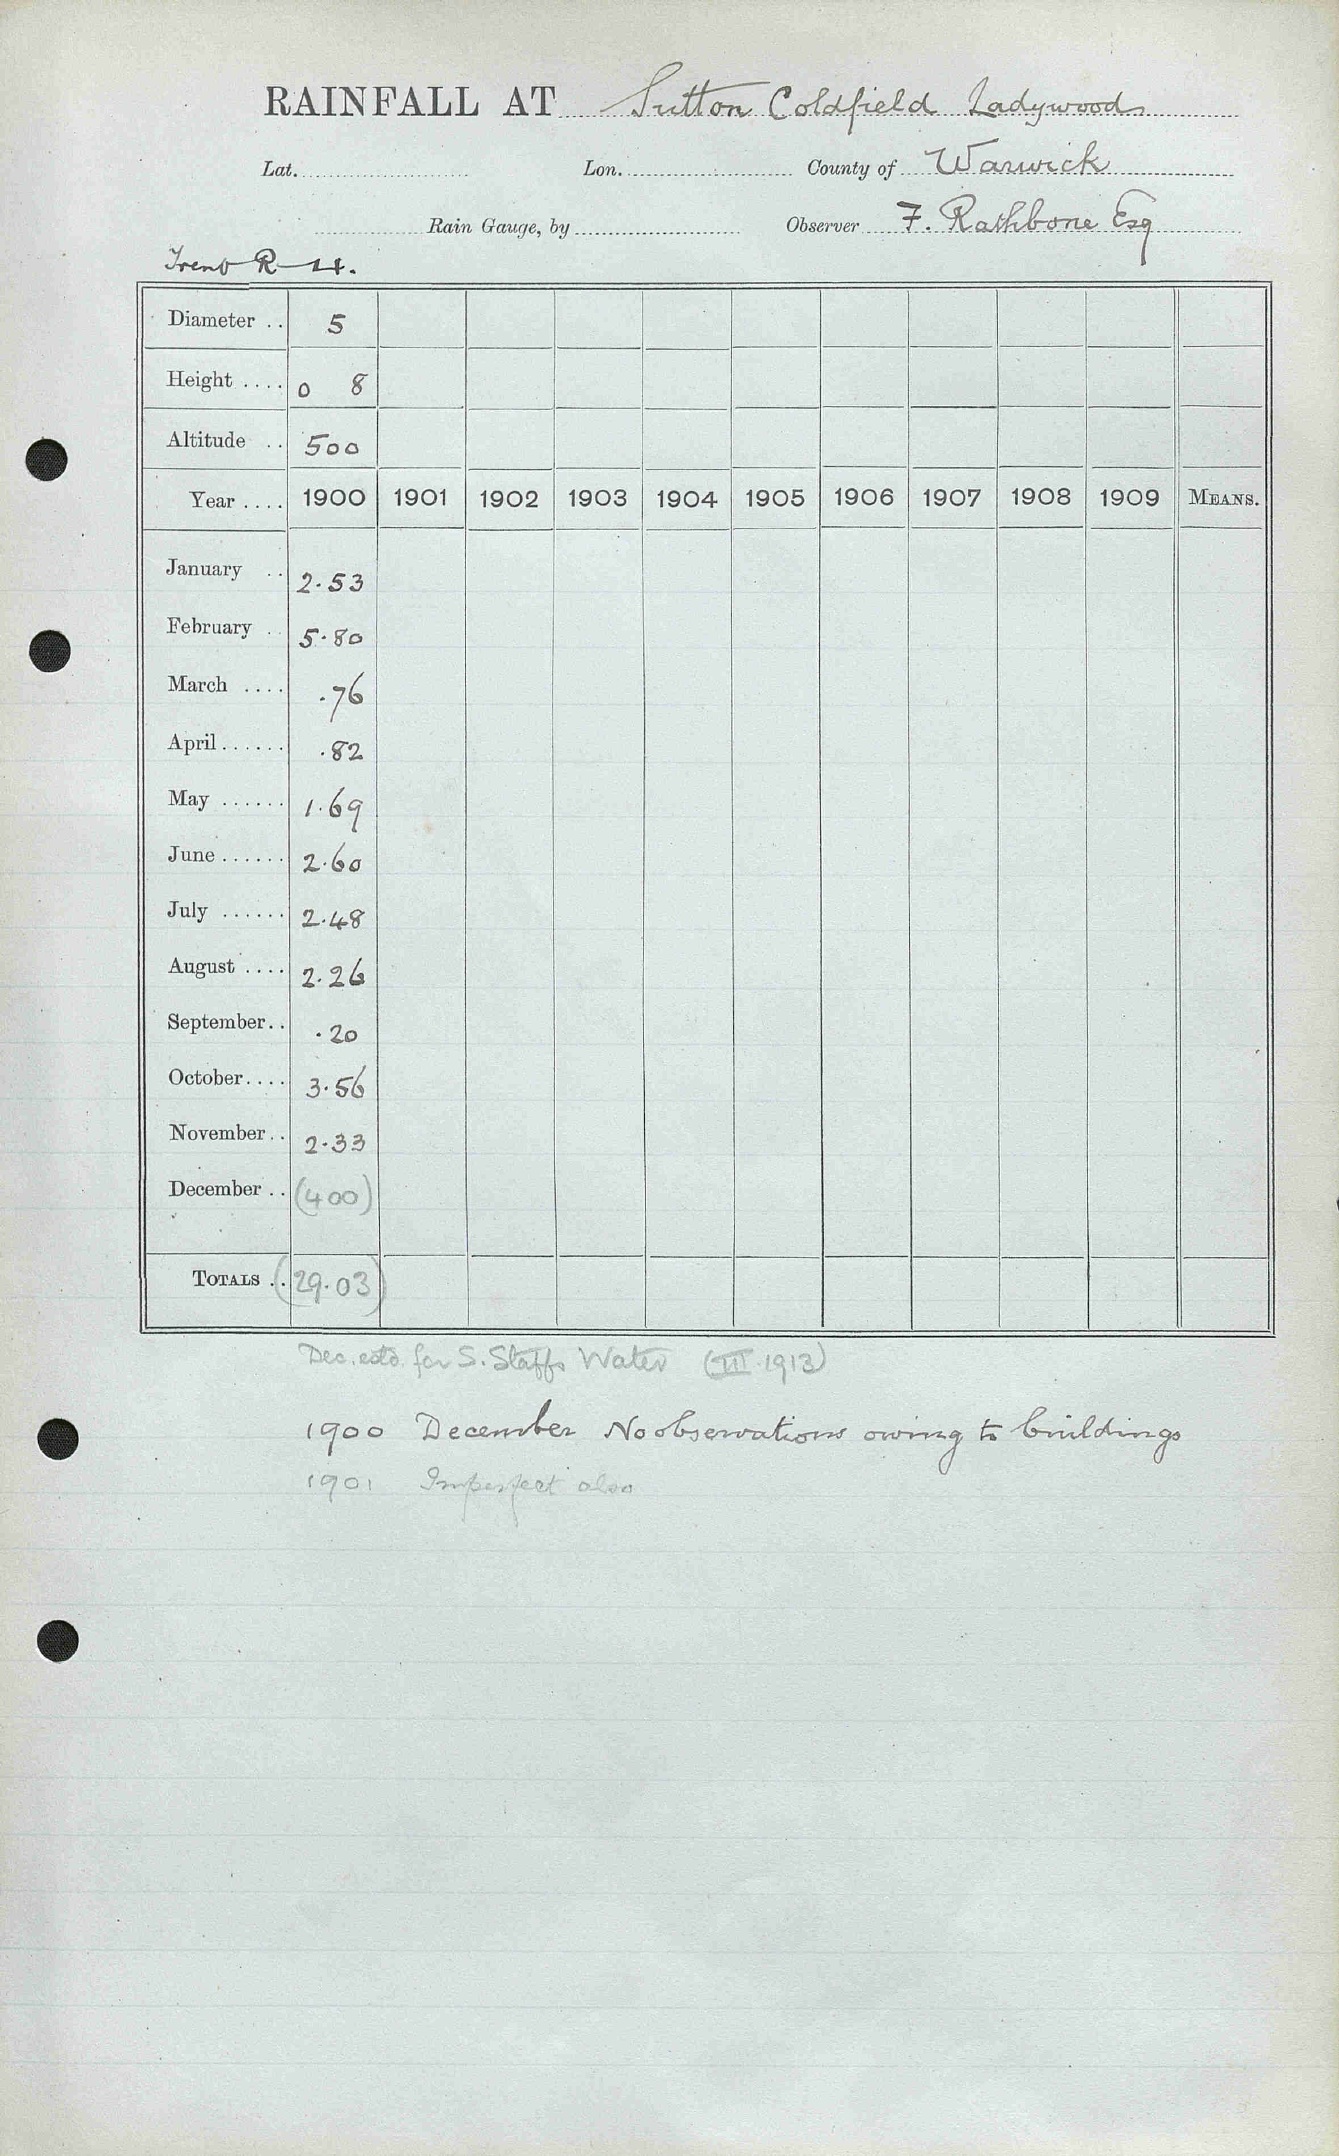 RAINFALL AT Sutton Coldfield Ladywood
Lat. Lon. County of Warwick
Rain Gauge, by Observer F. Rathbone Esq
Trent R
Diameter .. 5
Height .... 0 8
Altitude .. 500
Year .... 1900 1901 1902 1903 1904 1905 1906 1907 1908 1909 MEANS.
January .. 2.53
February .. 5.80
March .... .76
April ...... .82
May ...... 1.69
June ...... 2.60
July ...... 2.48
August .... 2.26
September .. .20
October .... 3.56
November .. 2.33
December .. (400)
TOTALS .. (29.03)
Dec. estd. for S. Staffs Water (III 1913)
1900 December No observations owing to buildings
1901 Imperfect also